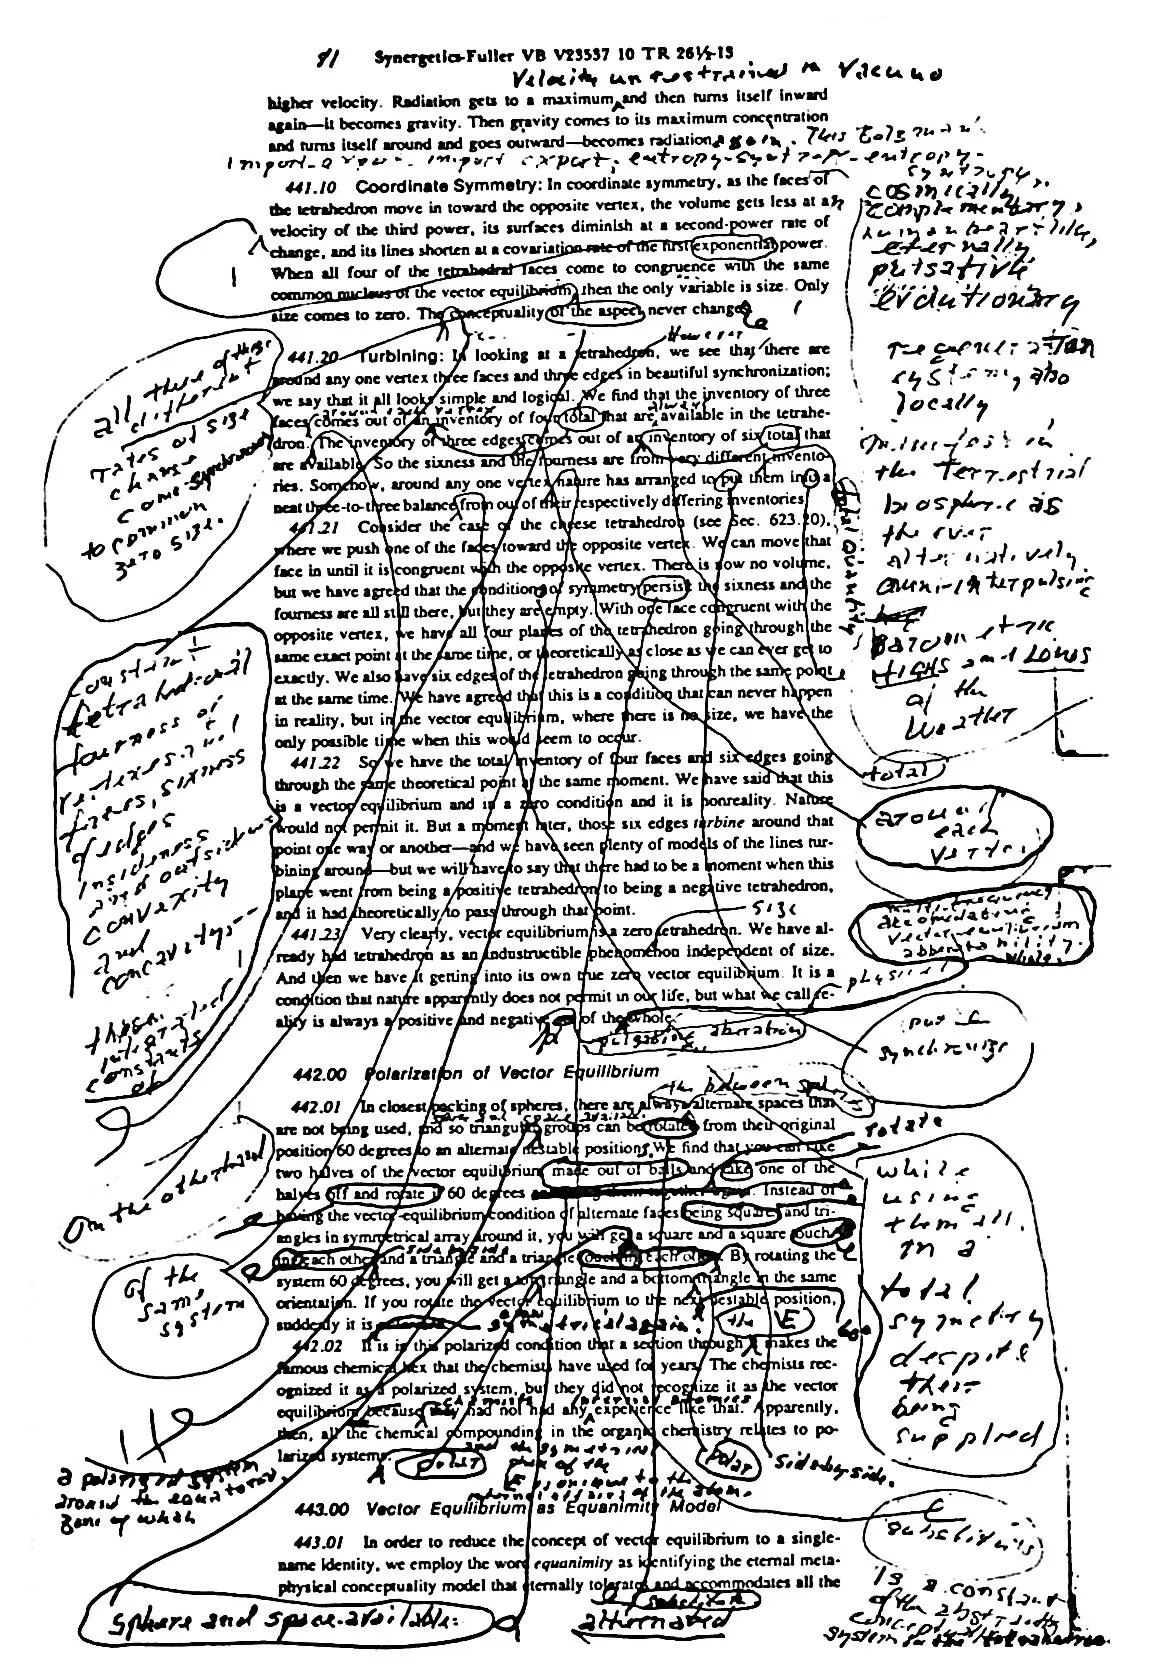 91 Synergetics-Fuller VB V23537 10 TR 26½-13
Velocity unrestrained in Vacuuo
higher velocity. Radiation gets to a maximum and then turns itself inward
again—it becomes gravity. Then gravity comes to its maximum concentration
and turns itself around and goes outward—becomes radiation again. This
import-export, import export, entropy-syntropy-entropy-
syntropy,
441.10 Coordinate Symmetry: In coordinate symmetry, as the faces of
the tetrahedron move in toward the opposite vertex, the volume gets less at a
velocity of the third power, its surfaces diminish at a second-power rate of
change, and its lines shorten at a covariation rate of the first exponential power.
When all four of the tetrahedral faces come to congruence with the same
common nucleus of the vector equilibrium, then the only variable is size. Only
size comes to zero. The conceptuality of the aspect never changes
cosmically
complementary,
human heart-like,
eternally
pulsative
evolutionary
regeneration
system, also
locally
manifest in
the terrestrial
biosphere as
the ever
alternatively
omni-interpulsing
barometric
HIGHS and LOWS
of the
Weather
However
441.20 Turbining: In looking at a tetrahedron, we see that there are
around any one vertex three faces and three edges in beautiful synchronization;
we say that it all looks simple and logical. We find that the inventory of three
faces comes out of an inventory of four total that are available in the tetrahe-
dron. The inventory of three edges comes out of an inventory of six total that
are available. So the sixness and the fourness are from very different invento-
ries. Somehow, around any one vertex nature has arranged to put them into a
neat three-to-three balance from out of their respectively differing inventories
all three of these
different
rates of size
change
come-synchronously
to common
zero size.
total quantity
441.21 Consider the case of the cheese tetrahedron (see Sec. 623.10),
where we push one of the faces toward the opposite vertex. We can move that
face in until it is congruent with the opposite vertex. There is now no volume,
but we have agreed that the conditions of symmetry persist the sixness and the
fourness are all still there, but they are empty. With one face congruent with the
opposite vertex, we have all four planes of the tetrahedron going through the
same exact point at the same time, or theoretically as close as we can ever get to
exactly. We also have six edges of the tetrahedron going through the same point
at the same time. We have agreed that this is a condition that can never happen
in reality, but in the vector equilibrium, where there is no size, we have the
only possible time when this would seem to occur.
constant
tetrahedral
fourness of
vertexes and
faces, sixness
of edges
insideness
and outsideness
convexity
and
concavity-
these
integral
constants
of
441.22 So we have the total inventory of four faces and six edges going
through the same theoretical point at the same moment. We have said that this
is a vector equilibrium and in a zero condition and it is nonreality. Nature
would not permit it. But a moment later, those six edges turbine around that
point one way or another—and we have seen plenty of models of the lines tur-
bining around—but we will have to say that there had to be a moment when this
plane went from being a positive tetrahedron to being a negative tetrahedron,
and it had theoretically to pass through that point.
total
around
each
vertex
size
441.23 Very clearly, vector equilibrium is a zero tetrahedron. We have al-
ready had tetrahedron as an indestructible phenomenon independent of size.
And then we have it getting into its own true zero vector equilibrium. It is a
condition that nature apparently does not permit in our life, but what we call re-
ality is always a positive and negative of the whole
physical
pulsating aberration
put
synchronize
442.00 Polarization of Vector Equilibrium
the between sphere
442.01 In closest packing of spheres, there are always alternate spaces that
are not being used, and so triangular groups can be rotated from their original
position 60 degrees to an alternate nestable position. We find that you can take
two halves of the vector equilibrium made out of balls and take one of the
halves off and rotate it 60 degrees. Instead of
having the vector-equilibrium condition of alternate faces being square and tri-
angles in symmetrical array around it, you will get a square and a square touch-
ing each other and a triangle and a triangle touching each other. By rotating the
system 60 degrees, you will get a top triangle and a bottom triangle in the same
orientation. If you rotate the vector equilibrium to the next nestable position,
suddenly it is symmetrical again.
the VE
rotate
On the other hand
of the
same
system
while
using
them all.
in a
total
symmetry
despite
their
being
supplied
442.02 It is in this polarized condition that a section through makes the
famous chemical hex that the chemists have used for years. The chemists rec-
ognized it as a polarized system, but they did not recognize it as the vector
equilibrium because they had not had any experience like that. Apparently,
then, all the chemical compounding in the organic chemistry relates to po-
larized systems.
a polarized system
around the equatorial
zone of which
polar
side-by-side.
443.00 Vector Equilibrium as Equanimity Model
443.01 In order to reduce the concept of vector equilibrium to a single-
name identity, we employ the word equanimity as identifying the eternal meta-
physical conceptuality model that eternally tolerates and accommodates all the
Sphere and space-available:
alternated
is a constant
of the abstract
conceptual
system